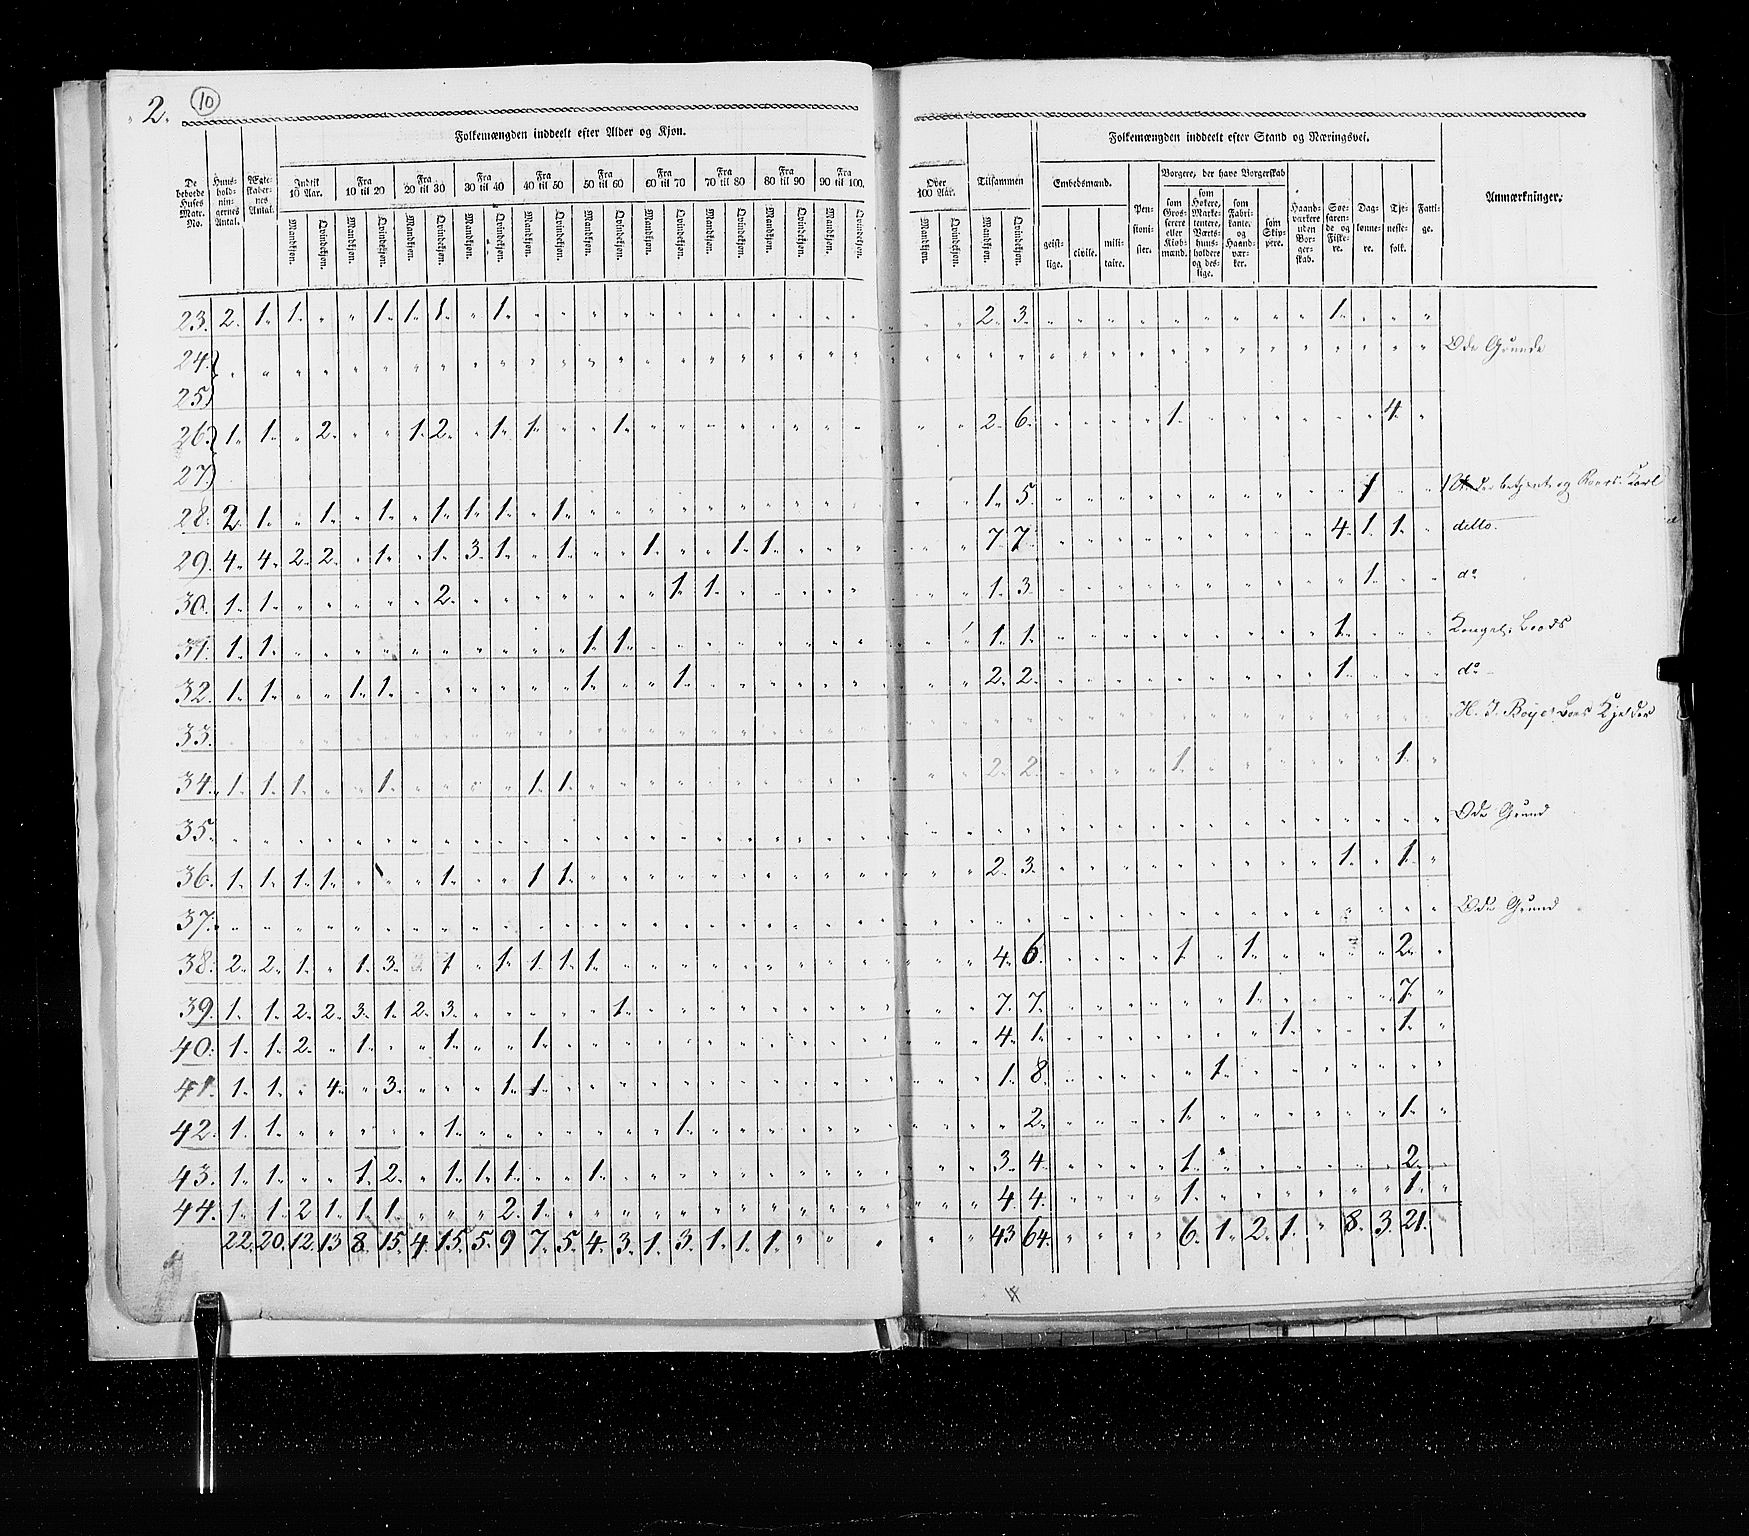 2. 10
Folkemængden inddeelt efter Alder og Kjøn.
De beboede Huses Matr. No. | Huus-hold-nin-gernes Antal. | Ægte-skaber-nes Antal. | Indtil 10 Aar. | Fra 10 til 20 | Fra 20 til 30 | Fra 30 til 40 | Fra 40 til 50 | Fra 50 til 60 | Fra 60 til 70 | Fra 70 til 80 | Fra 80 til 90 | Fra 90 til 100.
Mandkjøn. Qvindekjøn. Mandkjøn. Qvindekjøn. Mandkjøn. Qvindekjøn. Mandkjøn. Qvindekjøn. Mandkjøn. Qvindekjøn. Mandkjøn. Qvindekjøn. Mandkjøn. Qvindekjøn. Mandkjøn. Qvindekjøn. Mandkjøn. Qvindekjøn. Mandkjøn. Qvindekjøn.
23. 2. 1. 1. „ „ 1. 1. 1. „ 1. „ „ „ „ „ „ „ „ „ „ „ „
24. „ „ „ „ „ „ „ „ „ „ „ „ „ „ „ „ „ „ „ „ „ „
25
26. 1. 1. „ 2. „ „ 1. 2. „ 1. 1. „ „ 1. „ „ „ „ „ „ „ „
27
28. 2. 1. „ 1. „ 1. „ 1. 1. 1. „ 1. „ „ „ „ „ „ „ „ „ „
29. 4. 4. 2. 2. „ 1. „ 1. 3. 1. „ 1. „ „ 1. „ „ 1. 1. „ „ „
30. 1. 1. „ „ „ „ „ 2. „ „ „ „ „ „ „ 1. 1. „ „ „ „ „
31. 1. 1. „ „ „ „ „ „ „ „ „ „ 1. 1. „ „ „ „ „ „ „ „
32. 1. 1. „ „ 1. 1. „ „ „ „ „ „ 1. „ „ 1. „ „ „ „ „ „
33. „ „ „ „ „ „ „ „ „ „ „ „ „ „ „ „ „ „ „ „ „ „
34. 1. 1. 1. „ „ 1. „ „ „ „ 1. 1. „ „ „ „ „ „ „ „ „ „
35. „ „ „ „ „ „ „ „ „ „ „ „ „ „ „ „ „ „ „ „ „ „
36. 1. 1. 1. 1. „ „ „ 1. „ „ 1. 1. „ „ „ „ „ „ „ „ „ „
37. „ „ „ „ „ „ „ „ „ „ „ „ „ „ „ „ „ „ „ „ „ „
38. 2. 2. 1. „ 1. 3. „ 1. „ 1. 1. 1. 1. „ „ „ „ „ „ „ „ „
39. 1. 1. 2. 2. 3. 1. 2. 3. „ „ „ „ „ 1. „ „ „ „ „ „ „ „
40. 1. 1. 2. „ 1. „ „ 1. „ „ 1. „ „ „ „ „ „ „ „ „ „ „
41. 1. 1. „ 4. „ 3. „ „ „ 1. 1. „ „ „ „ „ „ „ „ „ „ „
42. 1. 1. „ „ „ „ „ 1. „ „ „ „ „ „ „ 1. „ „ „ „ „ „
43. 1. 1. „ „ 1. 2. „ 1. 1. 1. „ „ 1. „ „ „ „ „ „ „ „ „
44. 1. 1. 2. 1. 1. 1. „ „ „ 2. 1. „ „ „ „ „ „ „ „ „ „ „
22. 20. 12. 13 8. 15. 4. 15. 5. 9 7. 5. 4. 3. 1. 3. 1. 1. 1. „ „ „
Folkemængden inddeelt efter Stand og Næringsvei.
Over 100 Aar. | Tilsammen | Embedsmænd. | Pen-sioni-ster. | Borgere, der have Borgerskab | Haand-værkere uden Bor-ger-skab. | Søe-faren-de og Fiske-re. | Dag-lønne-re. | Tje-neste-folk. | Fatti-ge. | Anmærkninger.
Mandkjøn. Qvindekjøn. Mandkjøn. Qvindekjøn. geist-lige. civile. mili-taire. som Gros-serere eller Kiøb-mænd. som Høkere, Marke-tentere, Værts-huus-holdere og des-lige. som Fabri-kante. og Haand-vær-ker. som Skip-pere.
„ „ 2. 3. „ „ „ „ „ „ „ „ „ 1. „ „ „
„ „ „ „ „ „ „ „ „ „ „ „ „ „ „ „ „ Øde Grunde
„ „ 2. 6. „ „ „ „ 1. „ „ „ „ „ „ 4. „
„ „ 1. 5. „ „ „ „ „ „ „ „ „ „ 1 „ „
„ „ 7. 7. „ „ „ „ „ „ „ „ „ 4. 1. 1. „ ditto.
„ „ 1. 3. „ „ „ „ „ „ „ „ „ „ 1. „ „ do
„ „ 1. 1. „ „ „ „ „ „ „ „ „ 1. „ „ „
„ „ 2. 2. „ „ „ „ „ „ „ „ „ 1. „ „ „ do
„ „ „ „ „ „ „ „ „ „ „ „ „ „ „ „ „ H. J. Kjelder
„ „ 2. 2. „ „ „ „ 1. „ „ „ „ „ „ 1. „
„ „ „ „ „ „ „ „ „ „ „ „ „ „ „ „ „ Øde Grund
„ „ 2. 3. „ „ „ „ „ „ „ „ „ 1. „ 1. „
„ „ „ „ „ „ „ „ „ „ „ „ „ „ „ „ „ Øde Grund
„ „ 4. 6. „ „ „ „ 1 „ 1. „ „ „ „ 2. „
„ „ 7. 7. „ „ „ „ „ „ 1. „ „ „ „ 7. „
„ „ 4. 1. „ „ „ „ „ „ „ 1. „ „ „ 1. „
„ „ 1. 8. „ „ „ „ „ 1. „ „ „ „ „ „ „
„ „ „ 2. „ „ „ „ 1. „ „ „ „ „ „ 1. „
„ „ 3. 4. „ „ „ „ 1. „ „ „ „ „ „ 2. „
„ „ 4. 4. „ „ „ „ 1. „ „ „ „ „ „ 1. „
„ „ 43 64. „ „ „ „ 6. 1. 2. 1. „ 8. 3. 21.